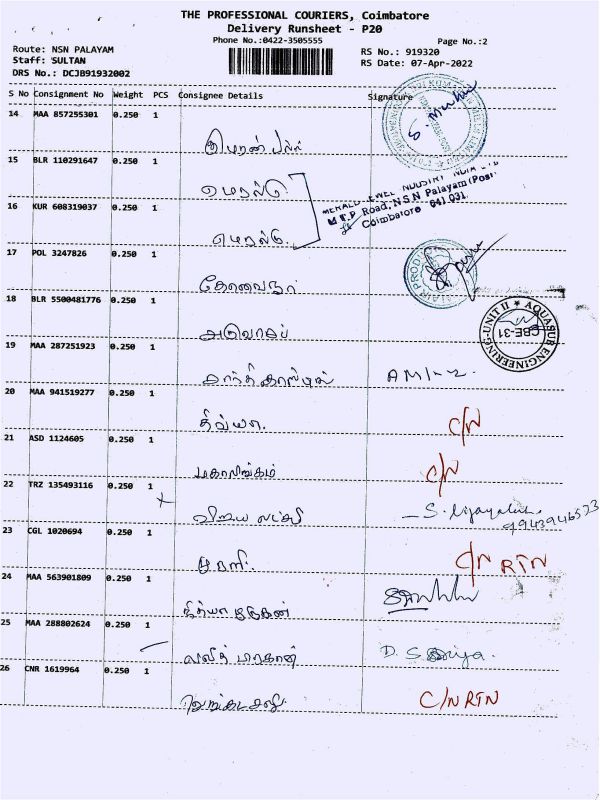 THE PROFESSIONAL COURIERS, Coimbatore
Delivery Runsheet - P20
Phone No.:0422-3505555
Page No.:2
Route: NSN PALAYAM
RS No.: 919320
Staff: SULTAN
RS Date: 07-Apr-2022
DRS No.: DCJB91932002
S No Consignment No Weight PCS Consignee Details Signature
14 MAA 857255301 0.250 1
15 BLR 110291647 0.250 1
எமரல்டு
16 KUR 608319037 0.250 1
எமரல்டு.
M.T.P. Road, N.S.N Palayam (Post.
Coimbatore 641 031.
17 POL 3247826 0.250 1
18 BLR 5500481776 0.250 1
AQUASUB ENGINEERING-UNIT II
CBE-31
19 MAA 287251923 0.250 1
20 MAA 941519277 0.250 1
திவ்யா. C/N
21 ASD 1124605 0.250 1
மகாலிங்கம் C/N
22 TRZ 135493116 0.250 1
விஜய லட்சுமி
23 CGL 1020694 0.250 1
முரளி. C/N RTN
24 MAA 563901809 0.250 1
25 MAA 288802624 0.250 1
26 CNR 1619964 0.250 1
C/N RTN